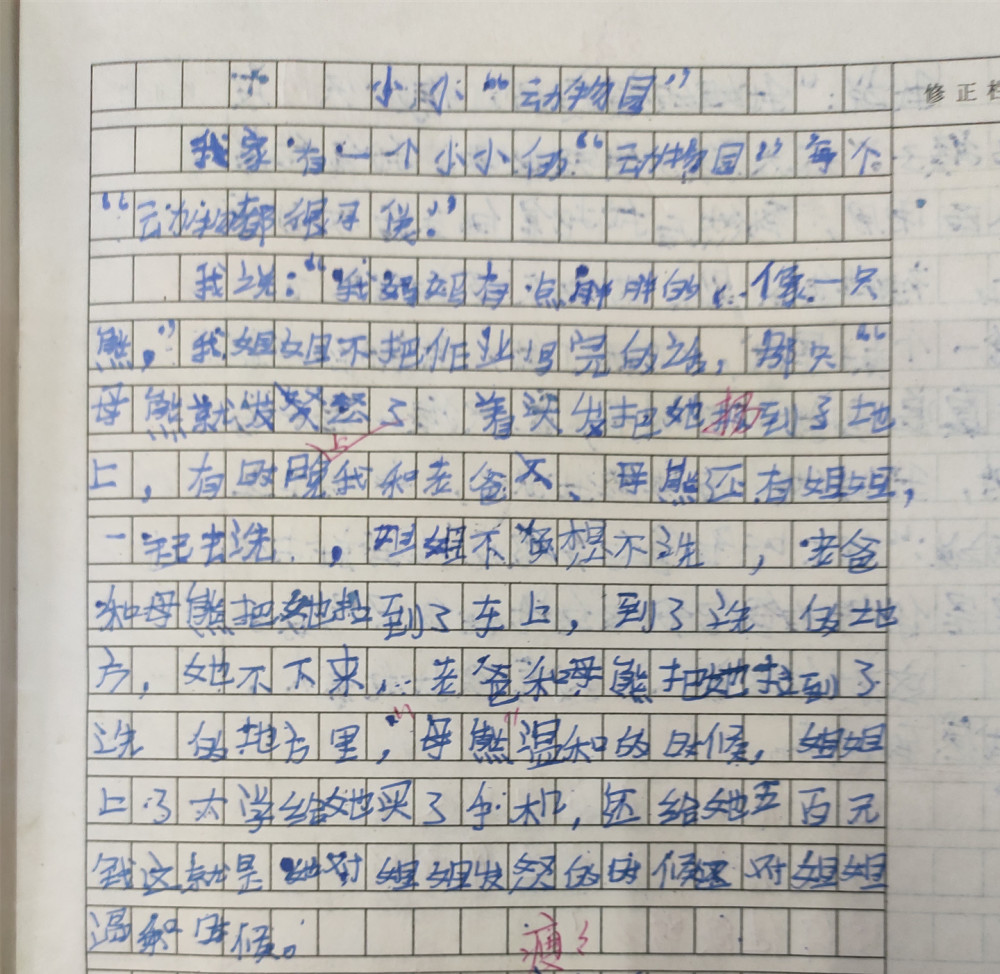 小小“动物园”
修正栏
我家有一个小小的“动物园”每个
“动物都很可爱.”
我说：“我妈妈有点胖胖的，像一只
熊，”我姐姐不把作业写完的话，那只“
母熊就发怒了 着头发把她 到了地
上，有时 我和老爸、母熊还有姐姐，
一起去洗 ，姐姐不想不洗 ，老爸
和母熊把她拉到了车上，到了洗 的地
方，她不下来，老爸和母熊把她拉到了
洗 的地方里，“母熊”温和的时候，姐姐
上了大学给她买了手机，还给她五百元
钱这就是她对姐姐发怒的时候 对姐姐
温和 时候。